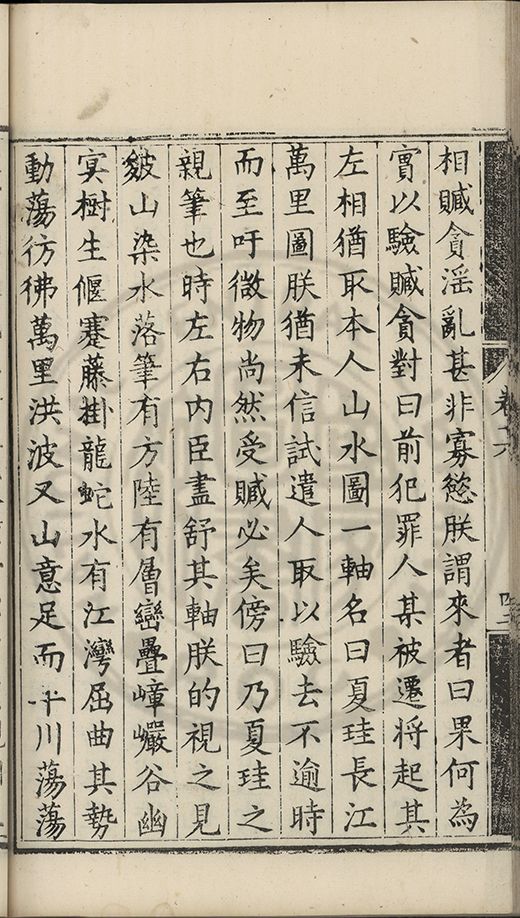 相贓貪滛亂甚非寡慾朕謂來者曰果何為
實以驗贓貪對曰前犯罪人某被遷将起其
左相猶取本人山水圖一軸名曰夏珪長江
萬里圖朕猶未信試遣人取以驗去不逾時
而至吁微物尚然受贓必矣傍曰乃夏珪之
親筆也時左右内臣盡舒其軸朕的視之見
皴山染水落筆有方陸有層巒疊嶂巗谷幽
㝠樹生偃蹇藤掛龍蛇水有江灣屈曲其勢
動蕩彷彿萬里洪波又山意足而平川蕩蕩
卷十六